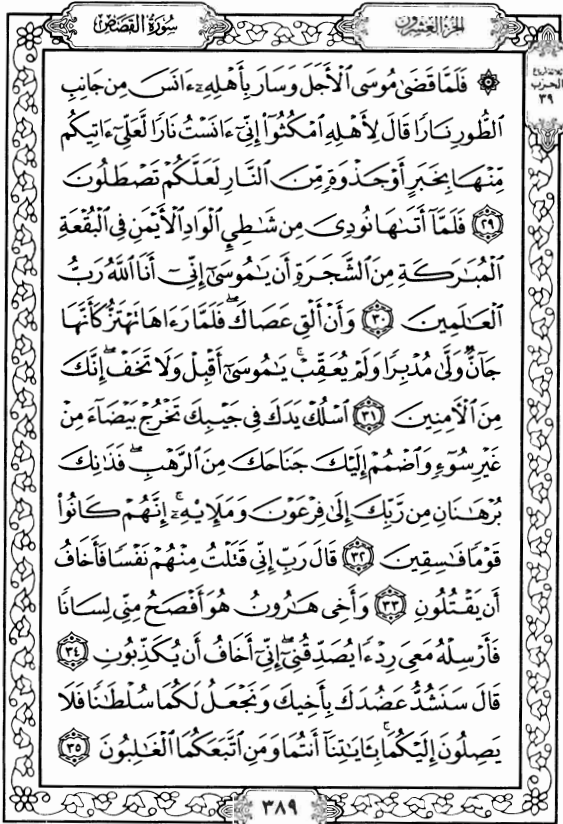 سُورَةُ القَصَصِ
الجزء العشرون
ثلاثة أرباع
الحزب
٣٩
۞ فَلَمَّا قَضَىٰ مُوسَى الْأَجَلَ وَسَارَ بِأَهْلِهِۦٓ ءَانَسَ مِن جَانِبِ
الطُّورِ نَارًا قَالَ لِأَهْلِهِ امْكُثُوٓا۟ إِنِّىٓ ءَانَسْتُ نَارًا لَّعَلِّىٓ ءَاتِيكُم
مِّنْهَا بِخَبَرٍ أَوْ جَذْوَةٍ مِّنَ النَّارِ لَعَلَّكُمْ تَصْطَلُونَ
٢٩ فَلَمَّآ أَتَىٰهَا نُودِىَ مِن شَٰطِئِ الْوَادِ الْأَيْمَنِ فِى الْبُقْعَةِ
الْمُبَٰرَكَةِ مِنَ الشَّجَرَةِ أَن يَٰمُوسَىٰٓ إِنِّىٓ أَنَا اللَّهُ رَبُّ
الْعَٰلَمِينَ ٣٠ وَأَنْ أَلْقِ عَصَاكَ ۖ فَلَمَّا رَءَاهَا تَهْتَزُّ كَأَنَّهَا
جَآنٌّ وَلَّىٰ مُدْبِرًا وَلَمْ يُعَقِّبْ ۚ يَٰمُوسَىٰٓ أَقْبِلْ وَلَا تَخَفْ ۖ إِنَّكَ
مِنَ الْءَامِنِينَ ٣١ اسْلُكْ يَدَكَ فِى جَيْبِكَ تَخْرُجْ بَيْضَآءَ مِنْ
غَيْرِ سُوٓءٍ وَاضْمُمْ إِلَيْكَ جَنَاحَكَ مِنَ الرَّهْبِ ۖ فَذَٰنِكَ
بُرْهَٰنَانِ مِن رَّبِّكَ إِلَىٰ فِرْعَوْنَ وَمَلَإِي۟هِۦٓ ۚ إِنَّهُمْ كَانُوا۟
قَوْمًا فَٰسِقِينَ ٣٢ قَالَ رَبِّ إِنِّى قَتَلْتُ مِنْهُمْ نَفْسًا فَأَخَافُ
أَن يَقْتُلُونِ ٣٣ وَأَخِى هَٰرُونُ هُوَ أَفْصَحُ مِنِّى لِسَانًا
فَأَرْسِلْهُ مَعِىَ رِدْءًا يُصَدِّقُنِىٓ ۖ إِنِّىٓ أَخَافُ أَن يُكَذِّبُونِ ٣٤
قَالَ سَنَشُدُّ عَضُدَكَ بِأَخِيكَ وَنَجْعَلُ لَكُمَا سُلْطَٰنًا فَلَا
يَصِلُونَ إِلَيْكُمَا ۚ بِـَٔايَٰتِنَآ أَنتُمَا وَمَنِ اتَّبَعَكُمَا الْغَٰلِبُونَ ٣٥
٣٨٩